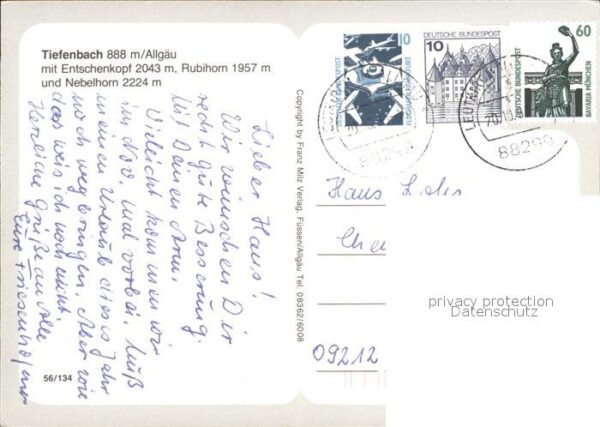 Tiefenbach 888 m/Allgäu
mit Entschenkopf 2043 m, Rubihorn 1957 m
und Nebelhorn 2224 m
Lieber Hans!
Wir wünschen Dir
recht gute Besserung
für Deinen Arm.
Vielleicht kommen wir
im Nov. mal vorbei. Muß
meinen Urlaub dieses Jahr
noch wegbringen. Aber wie
das weis ich noch nicht.
Herzliche Grüße an Alle
Eure
56/134
Copyright by Franz Milz Verlag, Füssen/Allgäu Tel. 08362/6008
10
DEUTSCHE BUNDESPOST
10
DEUTSCHE BUNDESPOST
60
DEUTSCHE BUNDESPOST
BAVARIA MÜNCHEN
88299
88299
Hans
Che
09212
privacy protection
Datenschutz